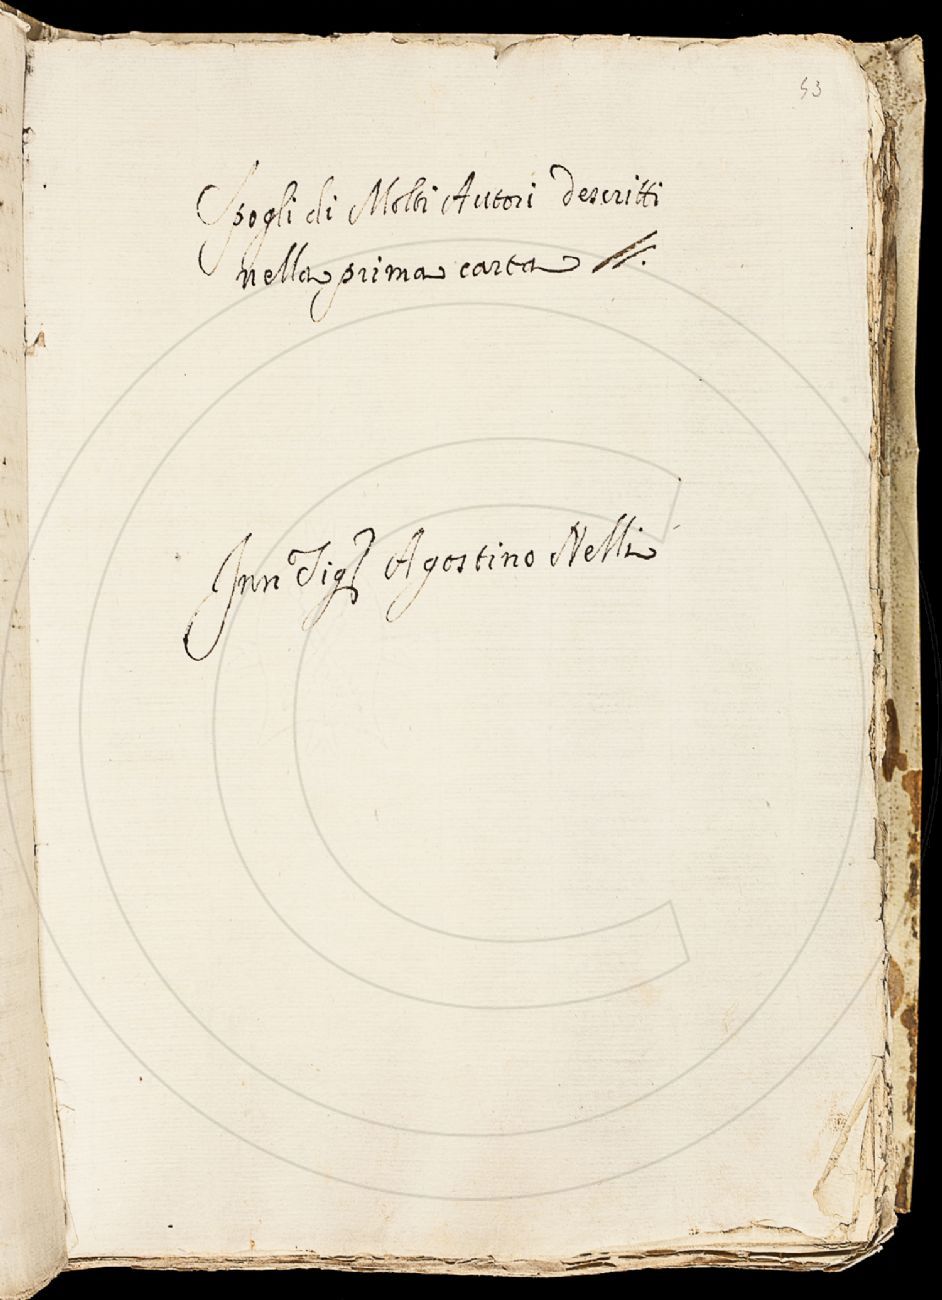 53
Spogli di Molti Autori descritti
nella prima carta //.
Agostino Nelli